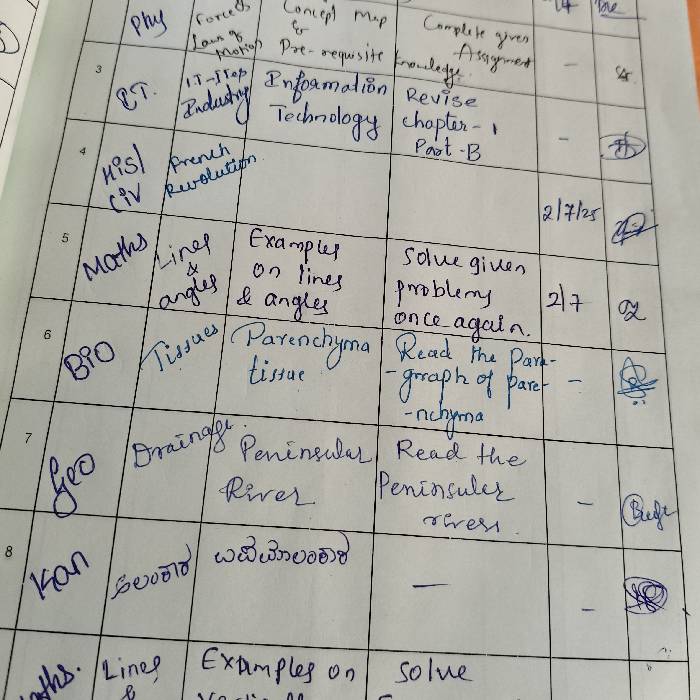 Phy
Forces
Laws of
Motion
Concept Map
&
Pre-requisite
Complete given
Assignment
knowledge.
-
3
IT-ITes
Industry
Information
Technology
Revise
chapter-1
Part-B
-
4
His/
Civ
French
Revolution
2/7/25
5
Maths
Lines
&
angles
Examples
on lines
& angles
Solve given
problems
once again.
2/7
6
BIO
Tissues
Parenchyma
tissue
Read the Para-
-graph of pare-
-nchyma
-
7
Geo
Drainage
Peninsular
River
Read the
Peninsular
rivers.
-
8
Kan
-
-
Maths.
Lines
&
Examples on
Solve